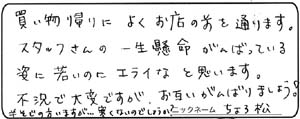 買い物帰りに よくお店の前を通ります。
スタッフさんの 一生懸命 がんばっている
姿に 若いのに エライな と思います。
不況で大変ですが、お互いがんばりましょう。
半そでの方いますが…寒くないのでしょうか?
ニックネーム ちょろ松